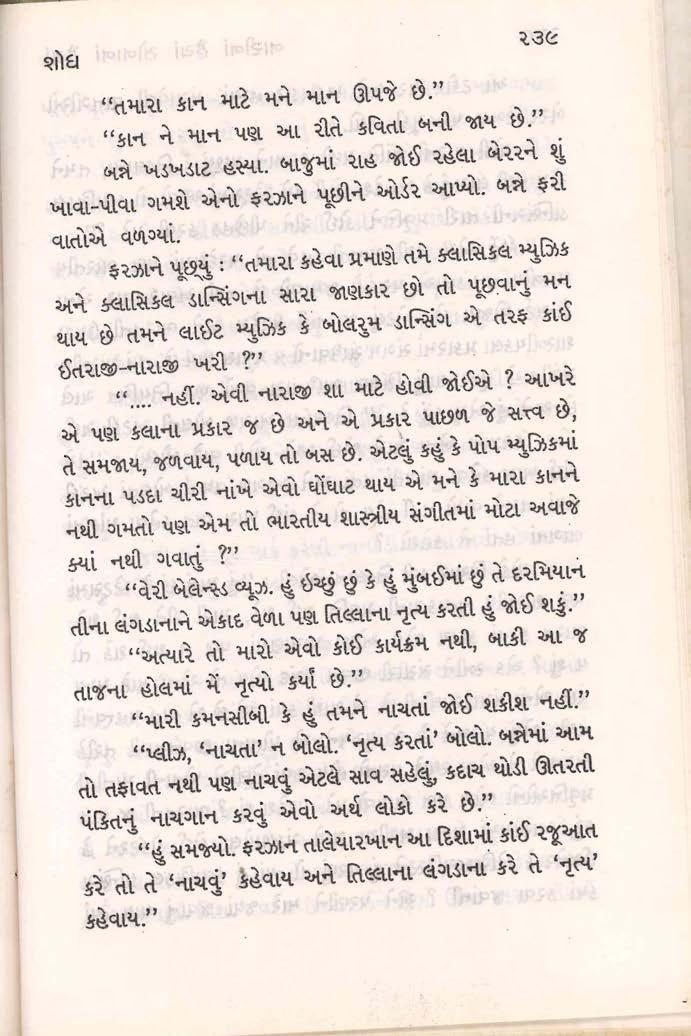 શોધ
૨૩૯
“તમારા કાન માટે મને માન ઊપજે છે.”
“કાન ને માન પણ આ રીતે કવિતા બની જાય છે.”
બન્ને ખડખડાટ હસ્યા. બાજુમાં રાહ જોઈ રહેલા બેરરને શું
ખાવા-પીવા ગમશે એનો ફરઝાને પૂછીને ઓર્ડર આપ્યો. બન્ને ફરી
વાતોએ વળગ્યાં.
ફરઝાને પૂછ્યું : “તમારા કહેવા પ્રમાણે તમે ક્લાસિકલ મ્યુઝિક
અને ક્લાસિકલ ડાન્સિંગના સારા જાણકાર છો તો પૂછવાનું મન
થાય છે તમને લાઈટ મ્યુઝિક કે બોલરૂમ ડાન્સિંગ એ તરફ કાંઈ
ઈતરાજી-નારાજી ખરી ?”
“.... નહીં. એવી નારાજી શા માટે હોવી જોઈએ ? આખરે
એ પણ કલાના પ્રકાર જ છે અને એ પ્રકાર પાછળ જે સત્ત્વ છે,
તે સમજાય, જળવાય, પળાય તો બસ છે. એટલું કહું કે પોપ મ્યુઝિકમાં
કાનના પડદા ચીરી નાંખે એવો ઘોંઘાટ થાય એ મને કે મારા કાનને
નથી ગમતો પણ એમ તો ભારતીય શાસ્ત્રીય સંગીતમાં મોટા અવાજે
ક્યાં નથી ગવાતું ?”
“વેરી બેલેન્સ્ડ વ્યૂઝ. હું ઈચ્છું છું કે હું મુંબઈમાં છું તે દરમિયાન
તીના લંગડાનાને એકાદ વેળા પણ તિલ્લાના નૃત્ય કરતી હું જોઈ શકું.”
“અત્યારે તો મારો એવો કોઈ કાર્યક્રમ નથી, બાકી આ જ
તાજના હોલમાં મેં નૃત્યો કર્યાં છે.”
“મારી કમનસીબી કે હું તમને નાચતાં જોઈ શકીશ નહીં.”
“પ્લીઝ, ‘નાચતા’ ન બોલો. ‘નૃત્ય કરતાં’ બોલો. બન્નેમાં આમ
તો તફાવત નથી પણ નાચવું એટલે સાવ સહેલું, કદાચ થોડી ઊતરતી
પંકિતનું નાચગાન કરવું એવો અર્થ લોકો કરે છે.”
“હું સમજ્યો. ફરઝાન તાલેયારખાન આ દિશામાં કાંઈ રજૂઆત
કરે તો તે ‘નાચવું’ કહેવાય અને તિલ્લાના લંગડાના કરે તે ‘નૃત્ય’
કહેવાય.”